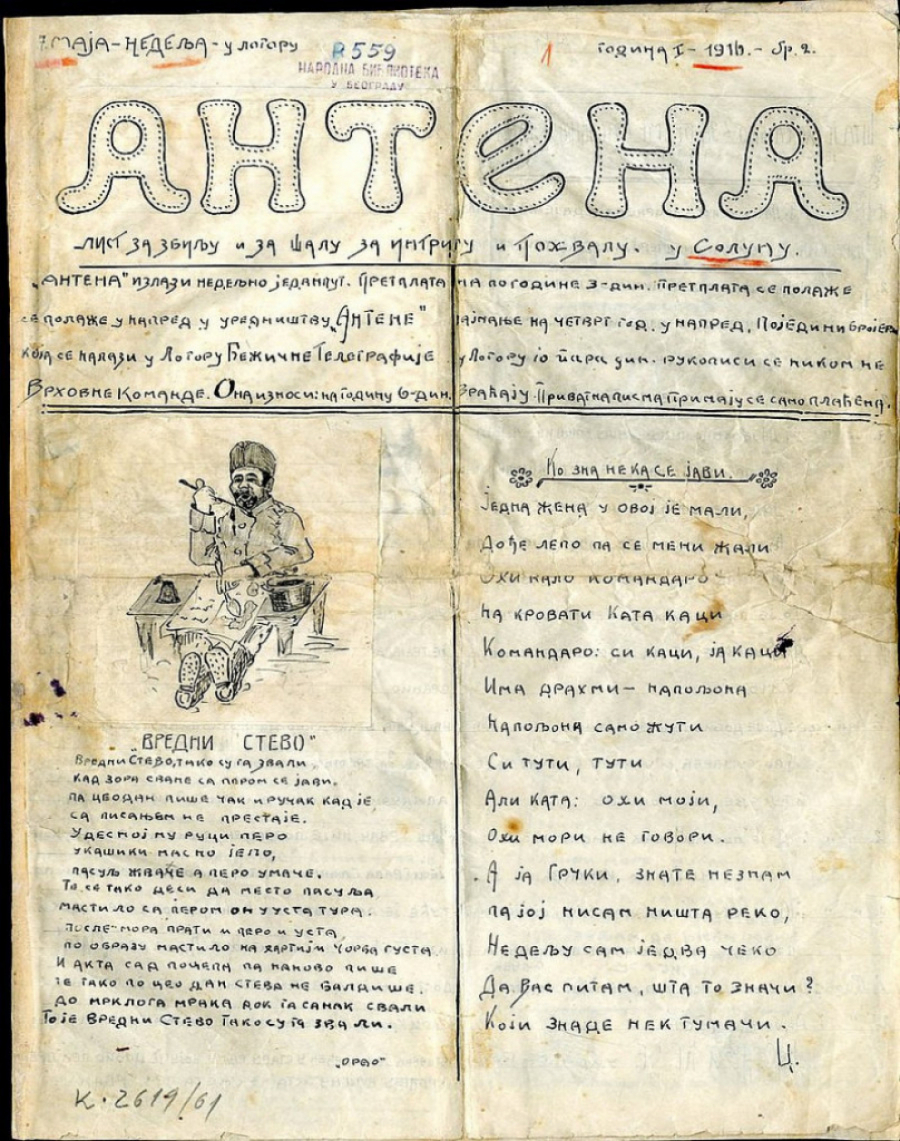 7. МАЈА – НЕДЕЉА – у ЛОГОРУ
Р 559
НАРОДНА БИБЛИОТЕКА
У БЕОГРАДУ
1
ГОДИНА I – 1916. – бр. 2.
АНТЕНА
ЛИСТ ЗА ЗБИЉУ И ЗА ШАЛУ ЗА ИНТРИГУ И ПОХВАЛУ. У СОЛУНУ.
„АНТЕНА" ИЗЛАЗИ НЕДЕЉНО ЈЕДАНПУТ. ПРЕТПЛАТА
СЕ ПОЛАЖЕ У НАПРЕД У УРЕДНИШТВУ „АНТЕНЕ"
КОЈА СЕ НАЛАЗИ У ЛОГОРУ БЕЖИЧНЕ ТЕЛЕГРАФИЈЕ
ВРХОВНЕ КОМАНДЕ. ОНА ИЗНОСИ: НА ГОДИНУ 6-ДИН.
НА ПО ГОДИНЕ 3-ДИН. ПРЕТПЛАТА СЕ ПОЛАЖЕ
НАЈМАЊЕ НА ЧЕТВРТ ГОД. У НАПРЕД. ПОЈЕДИНИ БРОЈЕВИ
У ЛОГОРУ 10 ПАРА ДИН. РУКОПИСИ СЕ НИКОМ НЕ
ВРАЋАЈУ. ПРИВАТНА ПИСМА ПРИМАЈУ СЕ САМО ПЛАЋЕНА.
„ВРЕДНИ СТЕВО"
ВРЕДНИ СТЕВО, ТАКО СУ ГА ЗВАЛИ,
КАД ЗОРА СВАНЕ СА ПЕРОМ СЕ ЈАВИ.
ПА ЦЕО ДАН ПИШЕ ЧАК И РУЧАК КАД ЈЕ,
СА ПИСАЊЕМ НЕ ПРЕСТАЈЕ.
У ДЕСНОЈ МУ РУЦИ ПЕРО
У КАШИКИ МАСНО ЈЕЛО,
ПАСУЉ ЖВАЋЕ А ПЕРО УМАЧЕ.
ТО СЕ ТАКО ДЕСИ ДА МЕСТО ПАСУЉА
МАСТИЛО СА ПЕРОМ ОН У УСТА ТУРА.
ПОСЛЕ МОРА ПРАТИ И ПЕРО И УСТА,
ПО ОБРАЗУ МАСТИЛО НА ХАРТИЈИ ЧОРБА ГУСТА
И АКТА САД ПОЦЕПА ПА НАНОВО ПИШЕ
ТЕ ТАКО ПО ЦЕО ДАН СТЕВА НЕ БАЛДИШЕ.
ДО МРКЛОГА МРАКА ДОК ГА САНАК СВАЛИ
ТО ЈЕ ВРЕДНИ СТЕВО ТАКО СУ ГА ЗВАЛИ.
„ОРАО"
К. 2619/61
КО ЗНА НЕКА СЕ ЈАВИ.
ЈЕДНА ЖЕНА У ОВОЈ ЈЕ МАЛИ,
ДОЂЕ ЛЕПО ПА СЕ МЕНИ ЖАЛИ
ОХИ КАЛО КОМАНДАРО
НА КРОВАТИ КАТА КАЦИ
КОМАНДАРО: СИ КАЦИ, ЈА КАЦИ
ИМА ДРАХМИ – НАПОЉОНА
НАПОЉОНА САМО ЖУТИ
СИ ТУТИ, ТУТИ
АЛИ КАТА: ОХИ МОЈИ,
ОХИ МОРИ НЕ ГОВОРИ.
А ЈА ГРЧКИ, ЗНАТЕ НЕЗНАМ
ПА ЈОЈ НИСАМ НИШТА РЕКО,
НЕДЕЉУ САМ ЈЕДВА ЧЕКО
ДА ВАС ПИТАМ, ШТА ТО ЗНАЧИ?
КОЈИ ЗНАДЕ НЕК ТУМАЧИ.
Ц.